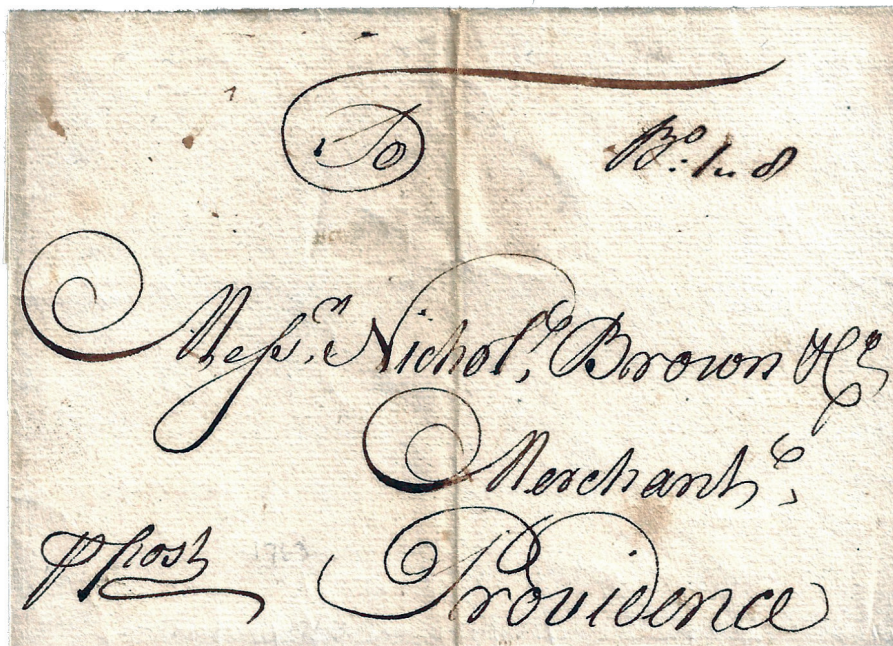 To
Bo: 1.. 8
Messrs. Nichols. Brown & Co
Merchants,
Providence
p post